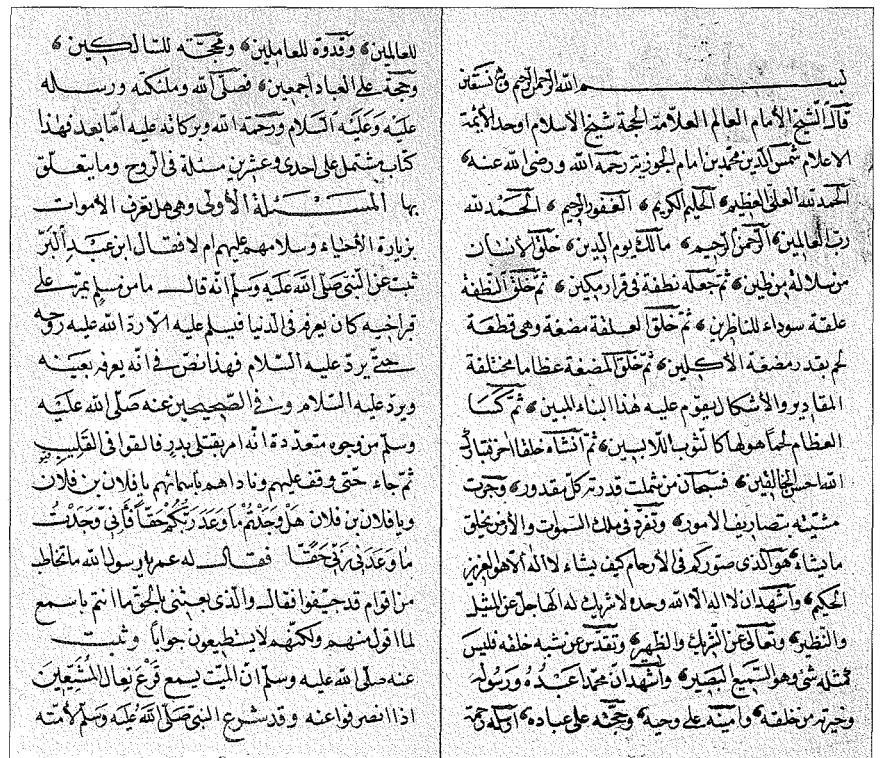 بسم الله الرحمن الرحيم وبه نستعين
قال الشيخ الأمام العالم العلامة الحجة شيخ الاسلام اوحد الأئمة
الاعلام شمس الدين محمد بن امام الجوزية رحمة الله ورضى الله عنه،
الحمد لله العلى العظيم، الحليم الكريم، الغفور الرحيم، الحمد لله
رب العالمين، الرحمن الرحيم، مالك يوم الدين، خلق الانسان
من سلالة من طين، ثم جعله نطفة في قرار مكين، ثم خلق النطفة
علقة سوداء للناظرين، ثم خلق العلقة مضغة وهى قطعة
لحم بقدر مضغة الأكلين، ثم خلق المضغة عظاما مختلفة
المقادير والأشكال يقوم عليه هذا البناء المبين، ثم كسا
العظام لحماً هولها كالثوب لللابسين، ثم انشاه خلقا اخر فتبارك
الله احسن الخالقين، فسبحان من شملت قدرته كل مقدور، وجرت
مشيئته بتصاريف الأمور، وتفرد فى ملك السموات والأرض يخلق
ما يشاء، هو الذى صوركم فى الأرحام كيف يشاء لا اله الا هو العزيز
الحكيم، واشهد ان لا اله الا الله وحده لا شريك له الها جل عن المثيل
والنظير، وتعالى عن الشريك والظهير، وتقدس عن شبه خلقه فليس
كمثله شئ وهو السميع البصير، واشهد ان محمداً عبده ورسوله
وخيرته من خلقه، وامينه على وحيه، وحجته على عباده، ارسله رحمة
للعالمين، وقدوة للعاملين، ومحجة للسالكين،
وحجة على العباد اجمعين، فصلى الله وملئكته ورسله
عليه وعليه السلام ورحمة الله وبركاته عليه اما بعد فهذا
كتاب مشتمل على احدى وعشرين مسئلة فى الروح وما يتعلق
بها المسئلة الأولى وهى هل تعرف الأموات
بزيارة الأحياء وسلامهم عليهم ام لا فقال ابن عبد البر
ثبت عن النبى صلى الله عليه وسلم انه قال ما من مسلم يمر على
قبر اخيه كان يعرفه فى الدنيا فيسلم عليه الا رد الله عليه روحه
حتى يرد عليه السلام فهذا نص فى انه يعرفه بعينه
ويرد عليه السلام وفى الصحيحين عنه صلى الله عليه
وسلم من وجوه متعددة انه امر بقتلى بدر فالقوا فى القليب
ثم جاء حتى وقف عليهم وناداهم باسمائهم يا فلان بن فلان
ويا فلان بن فلان هل وجدتم ما وعد ربكم حقاً فانى وجدت
ما وعدنى ربى حقا فقال له عمر يا رسول الله ما تخاطب
من اقوام قد جيفوا فقال والذى بعثنى بالحق ما انتم باسمع
لما اقول منهم ولكنهم لا يستطيعون جواباً وثبت
عنه صلى الله عليه وسلم ان الميت يسمع قرع نعال المشيعين
اذا انصرفوا عنه وقد شرع النبى صلى الله عليه وسلم لأمته